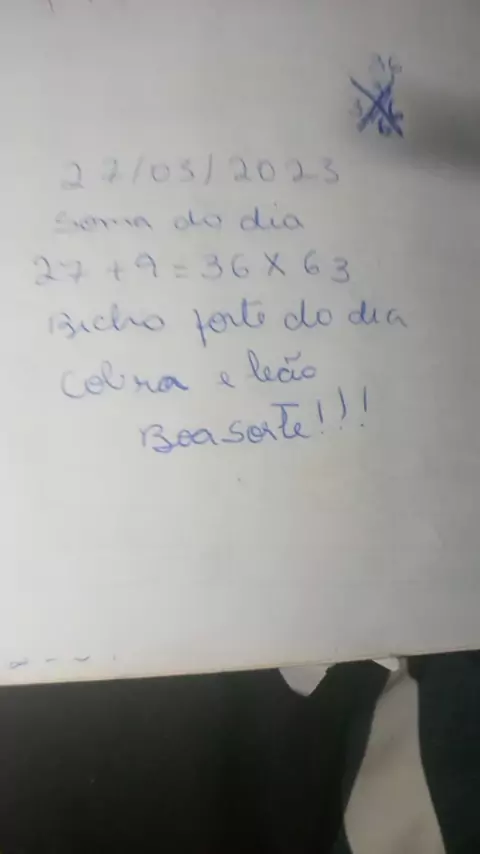 27/03/2023
Soma do dia
27 + 9 = 36 X 63
Bicho forte do dia
Cobra e leão
Boa Sorte!!!